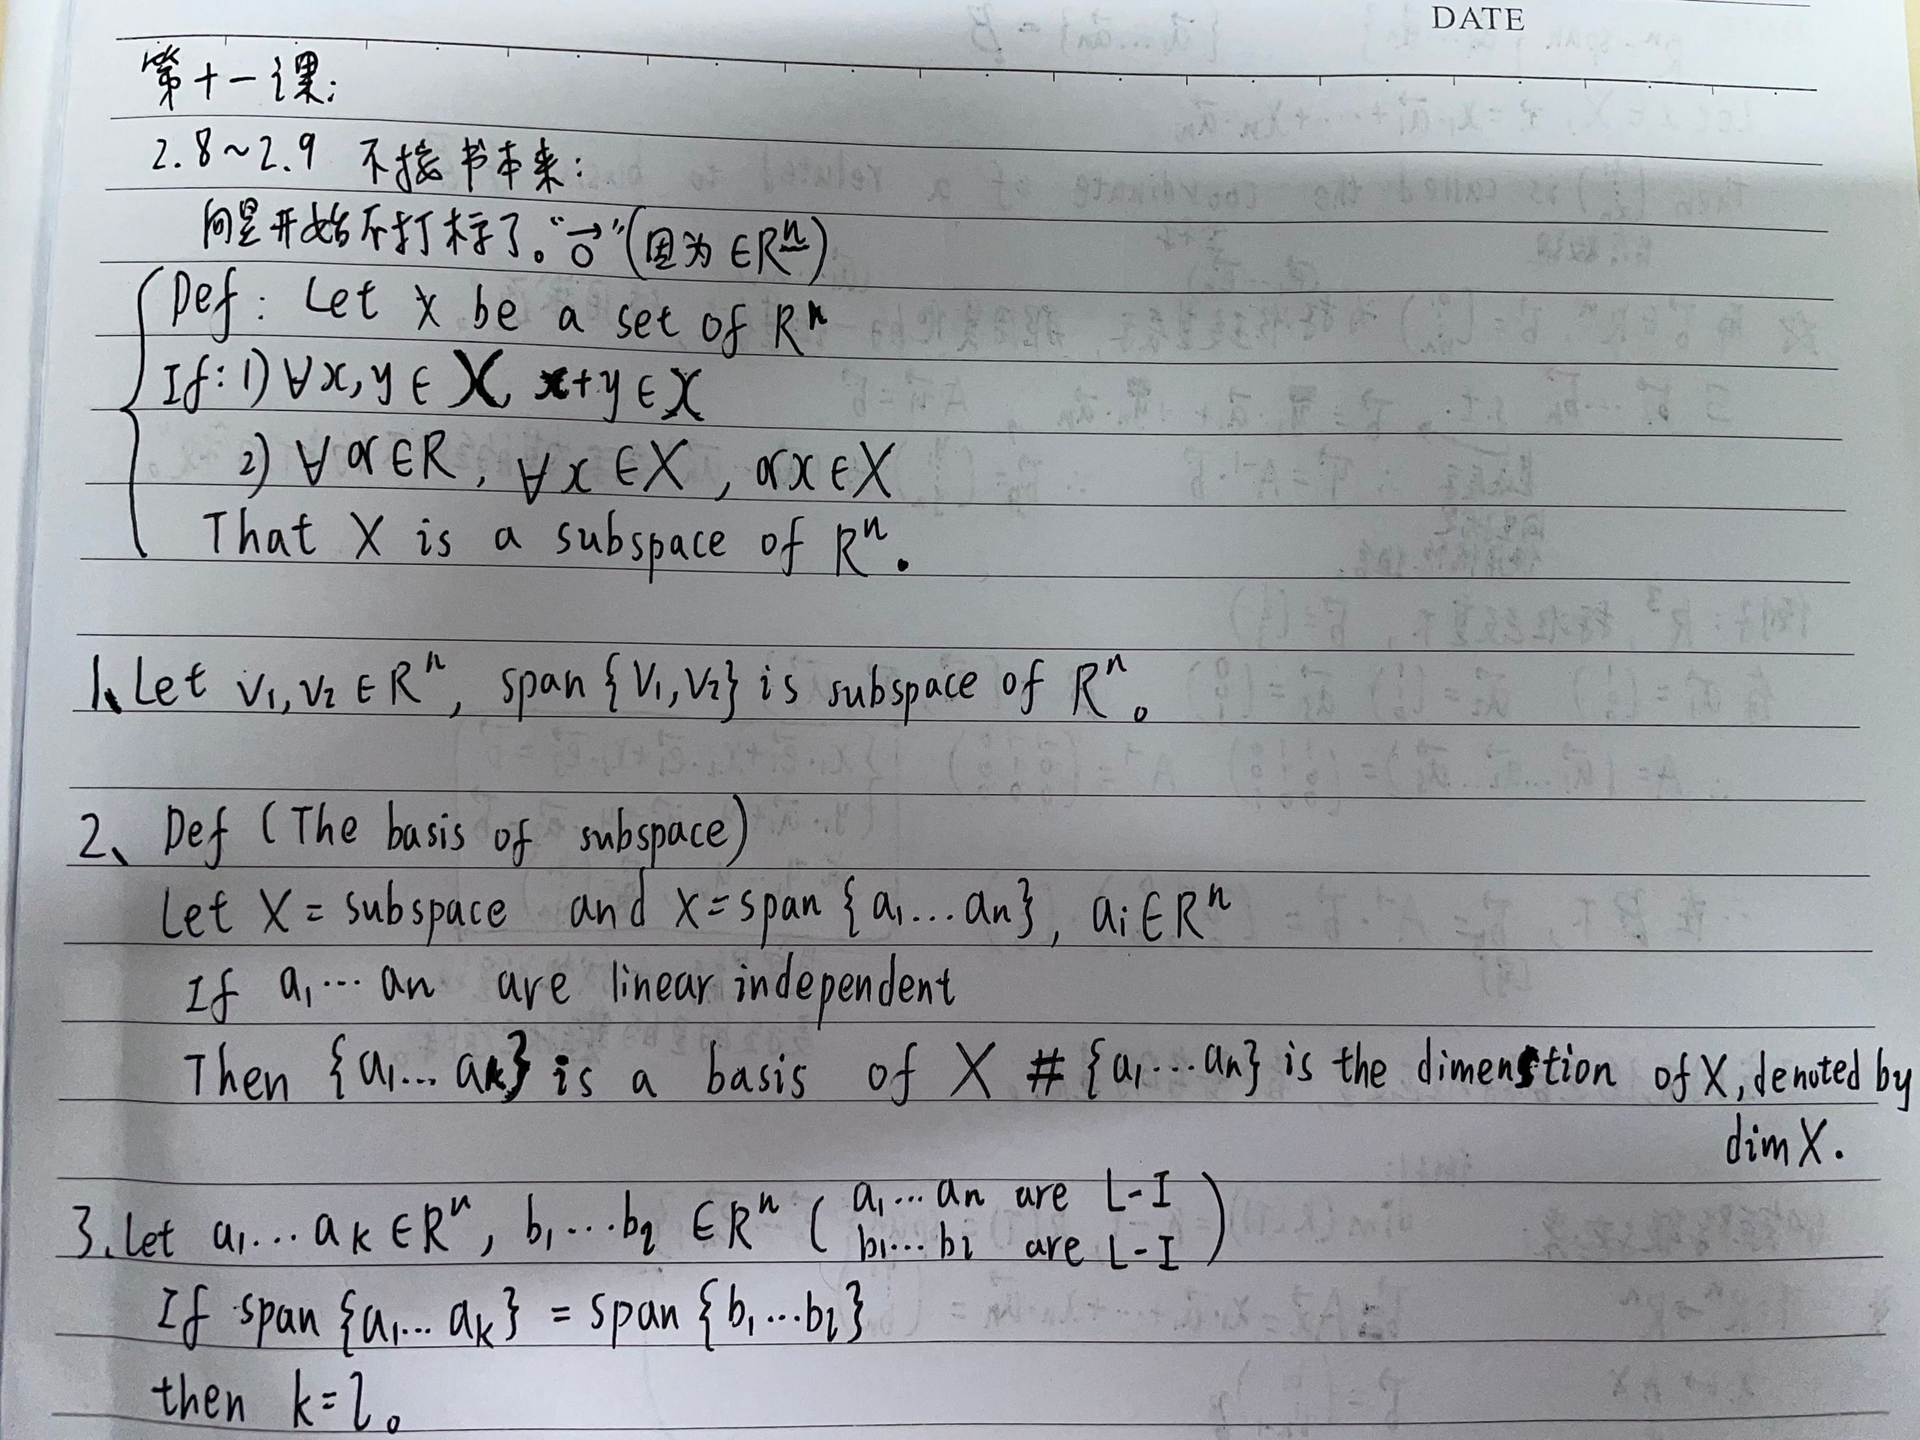 DATE
第十一课:
2.8~2.9 不按书本来:
向量开始不打标了。“→0”(因为 ∈Rⁿ)
Def: Let X be a set of Rⁿ
If: 1) ∀x, y ∈ X, x+y ∈ X
2) ∀α∈R, ∀x ∈X, αx ∈X
That X is a subspace of Rⁿ.
1、Let v₁, v₂ ∈ Rⁿ, span {v₁, v₂} is subspace of Rⁿ。
2、 Def (The basis of subspace)
Let X = subspace and X = span {a₁... an}, ai ∈ Rⁿ
If a₁... an are linear independent
Then {a₁... ak} is a basis of X # {a₁... an} is the dimenstion of X, denoted by
dim X.
3. Let a₁... ak ∈ Rⁿ, b₁...bl ∈ Rⁿ ( a₁... an are L-I
b₁... bl are L-I )
If span {a₁... ak} = span {b₁...bl}
then k=l。